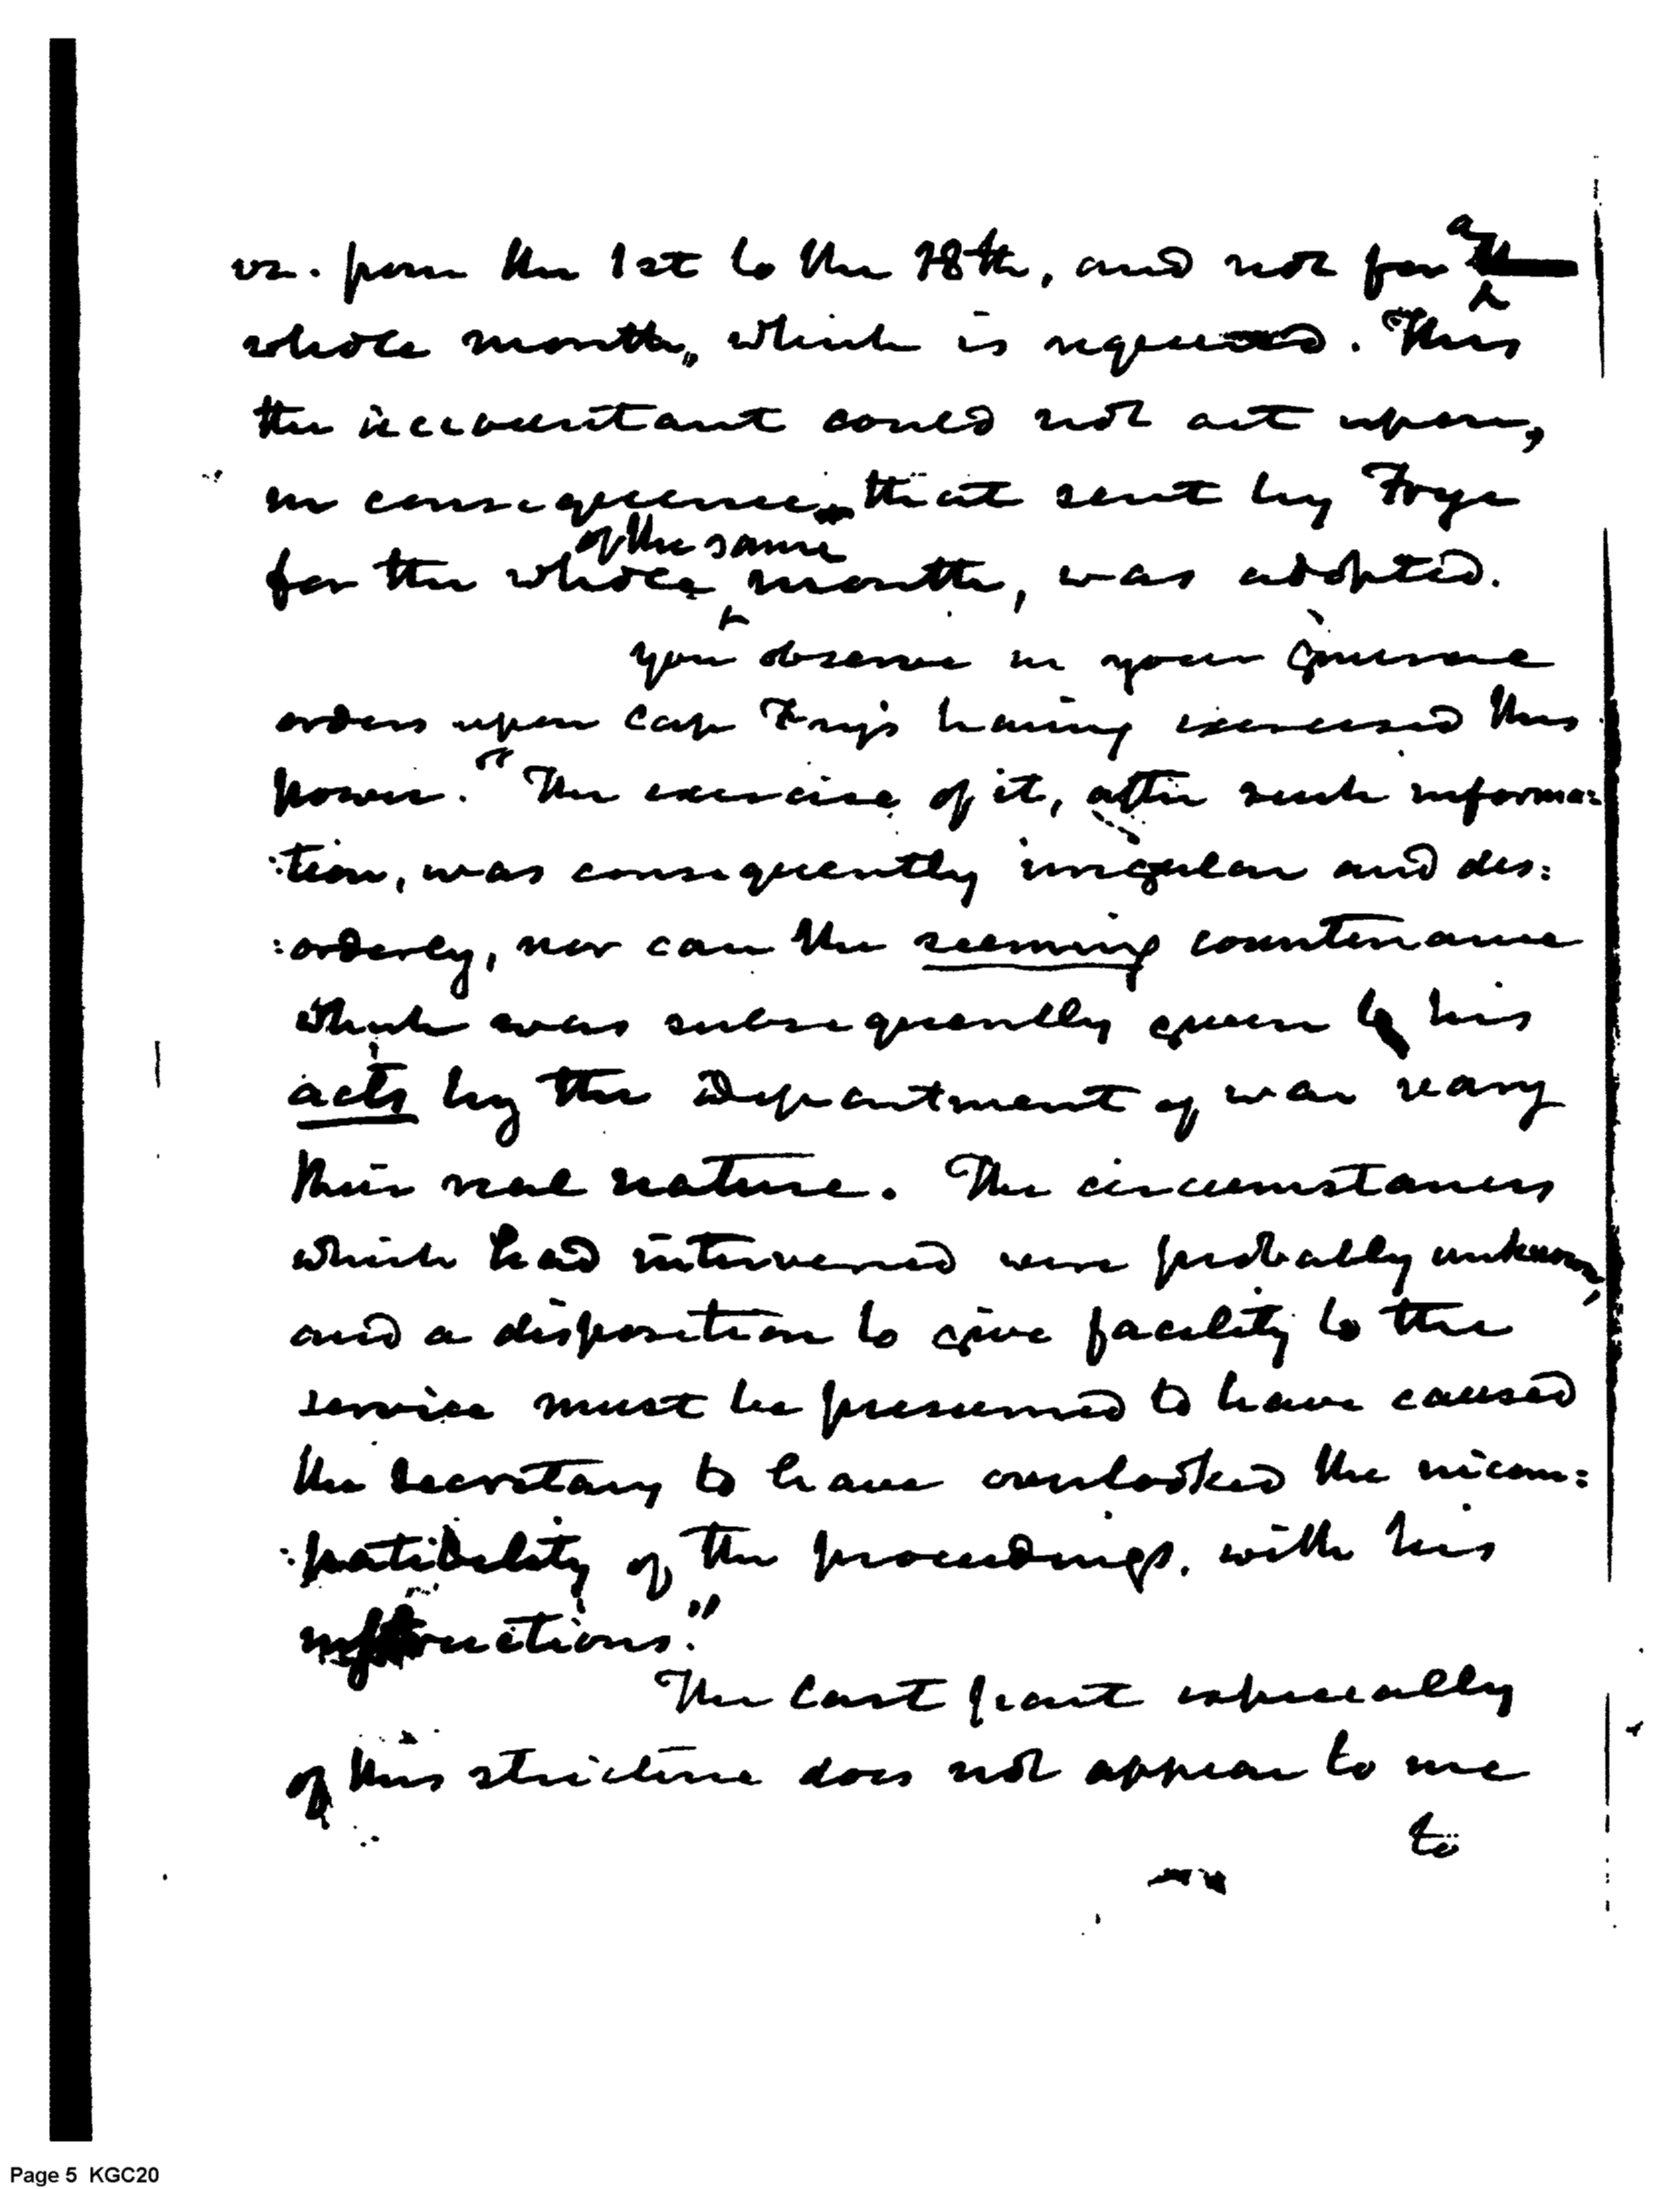 viz. from the 1st to the 18th, and not for a
whole month, which is required. This
the accountant could not act upon,
in consequence that sent by Frye
for the whole of the same month, was adopted.
you observe in your General
orders upon Cap Frye's having exercised this
power. "The exercise of it, after such informa:
:tion, was consequently irregular and dis:
:orderly, nor can the seeming countenance
which was subsequently given to his
acts by the Department of war vary
their real nature. The circumstances
which had intervened were probably unknown,
and a disposition to give facility to the
service must be presumed to have caused
the Secretary to have overlooked the incom:
:patibility of the proceedings, with his
instructions."
The last part especially
of this stricture does not appear to me
to
Page 5 KGC20